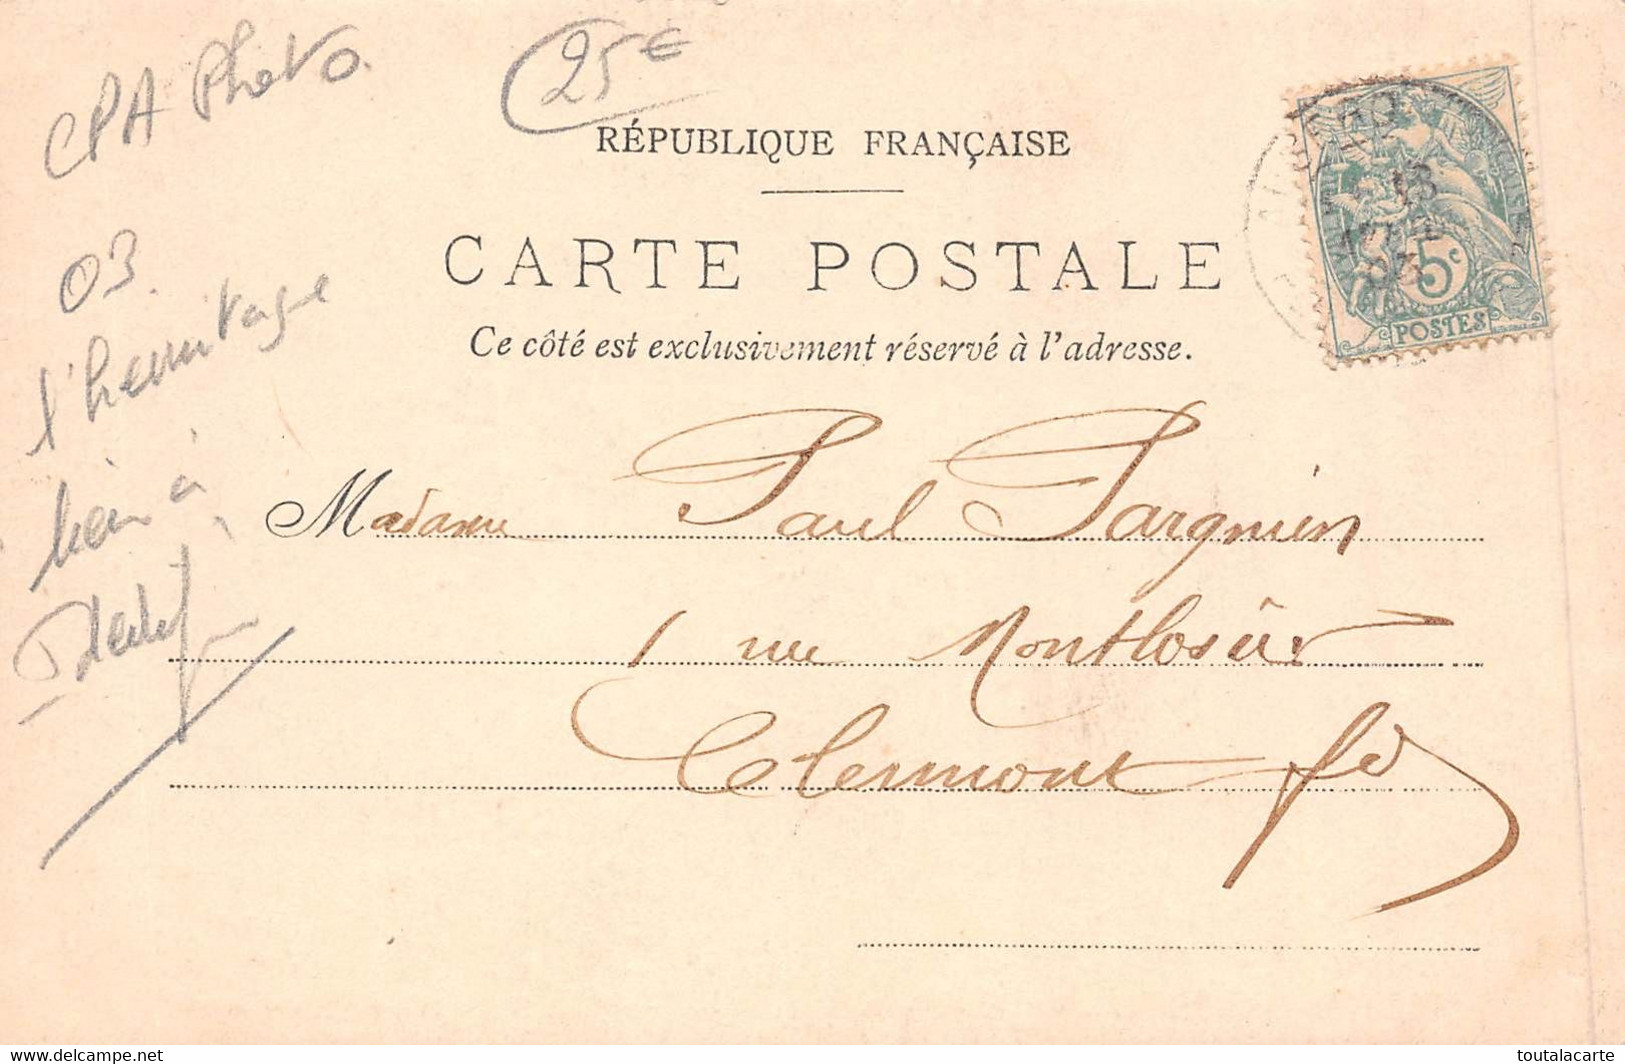 CPA Photo.
25€
RÉPUBLIQUE FRANÇAISE
CARTE POSTALE
Ce côté est exclusivement réservé à l'adresse.
5c
POSTES
03.
l'hermitage
à
Madame Paul Pargnien
1 rue Montlosier
Clermont fd
delcampe.net
toutalacarte